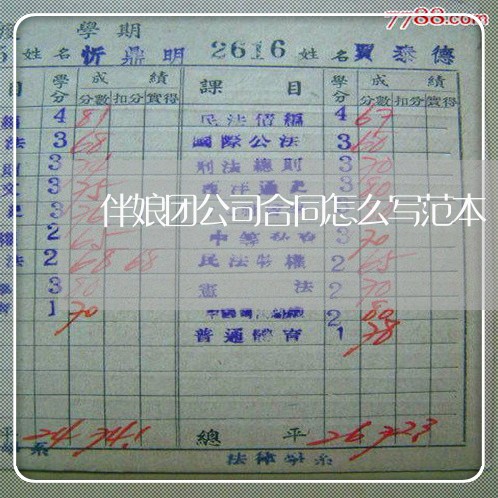 7788.com
學期
姓名 忻鼎明 2616 姓名 賈泰德
目 學分 成績 課目 學分 成績
分數 扣分 實得 分數 扣分 實得
4 81 民法債編 4 67
法 3 68 國際公法 3 60
3 刑法總則 3 70
3 75 西洋通史 3 80
伴娘团公司合同怎么写范本
2 65 3 70
法 2 68 68 民法物權 2 65
3 80 憲法 2 70
1 70 2 80
普通體育 1 78
平 24 74.1 總平 26 72.3
系 法律學系